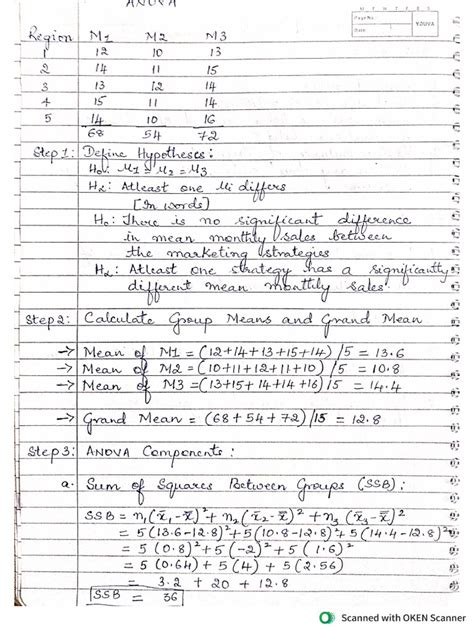 ANOVA
Page No.
Date:
YOUVA
Region M1 M2 M3
1 12 10 13
2 14 11 15
3 13 12 14
4 15 11 14
5 14 10 16
68 54 72
Step 1: Define Hypotheses:
H₀: M1 = M2 = M3
Hα: Atleast one Mi differs
[In words]
H₀: There is no significant difference
in mean monthly sales between
the marketing strategies
Hα: Atleast one strategy has a significantly
different mean monthly sales.
Step 2: Calculate Group Means and Grand Mean
→ Mean of M1 = (12+14+13+15+14)/5 = 13.6
→ Mean of M2 = (10+11+12+11+10)/5 = 10.8
→ Mean of M3 = (13+15+14+14+16)/5 = 14.4
→ Grand Mean = (68+54+72)/15 = 12.8
Step 3: ANOVA Components:
a. Sum of Squares Between Groups (SSB):
SSB = n₁(x̄₁-x̿)²+n₂(x̄₂-x̿)²+n₃(x̄₃-x̿)²
= 5(13.6-12.8)²+5(10.8-12.8)²+5(14.4-12.8)²
= 5(0.8)²+5(-2)²+5(1.6)²
= 5(0.64)+5(4)+5(2.56)
= 3.2 + 20 + 12.8
SSB = 36
Scanned with OKEN Scanner